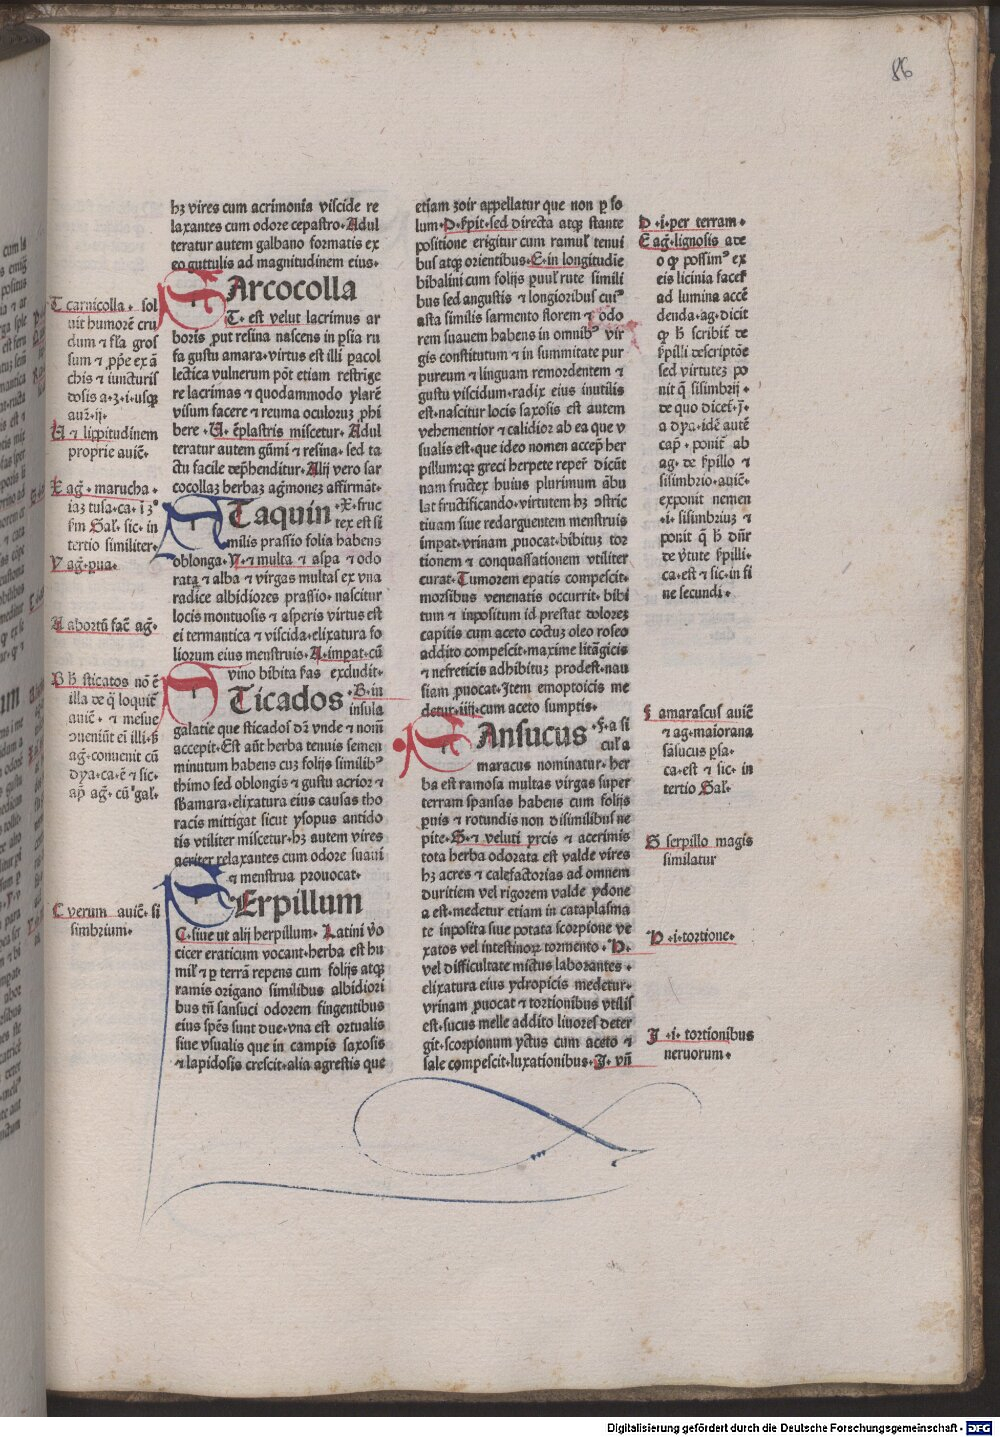 86
hꝫ vires cum acrimonia viscide re
laxantes cum odore cepastro. Adul
teratur autem galbano formatis ex
eo guttulis ad magnitudinem eius.
SArcocolla
T. est velut lacrimus ar
boris ꝓut resina nascens in ꝑsia ru
fa gustu amara. virtus est illi ꝑacol
lectiua vulnerum pōt etiam restrīge
re lacrimas ⁊ quodammodo ylarē
visum facere ⁊ reuma oculorum ꝓhi
bere. U. ēplastris miscetur. Adul
teratur autem gūmi ⁊ resina. sed ta
ctu facile depͥhenditur. Alij vero sar
cocollaꝫ herbaꝫ agͥmoneꝫ affirmāt.
STaquin .X. fruc
tex est si
milis prassio folia habens
oblonga. Y. ⁊ multa ⁊ aspa ⁊ odo
rata ⁊ alba ⁊ virgas multas ex vna
radice albidiores prassio. nascitur
locis montuosis ⁊ asperis virtus est
ei termantica ⁊ viscida. elixatura fo
liorum eius menstruis. A. imꝑat. cū
vino bibita fͣas excludit.
STicados .B. in
insula
galatie que sticados dꝫ vnde ⁊ nomē
accepit. Est aūt herba tenuis semen
minutum habens cuꝫ folijs similibꝰ
thimo sed oblongis ⁊ gustu acrior ⁊
sbamara. elixatura eius causas tho
racis mittigat sicut ysopus antido
tis vtiliter miscetur. hꝫ autem vires
acriter relaxantes cum odore suaui
⁊ menstrua prouocat.
SErpillum
C. siue ut alij herpillum. Latini vͦo
cicer eraticum vocant. herba est hu
mil ⁊ ꝑ terrā repens cum folijs atqꝫ
ramis origano similibus albidiori
bus tn̄ sansuci odorem fingentibus
eius spēs sunt due. vna est ortualis
siue vsualis que in campis saxosis
⁊ lapidosis crescit. alia agrestis que
etiam zoir appellatur que non ꝑ so
lum. D. sꝛpit. sed directa atqꝫ stante
positione erigitur cum ramul tenui
bus atqꝫ orientibus. E. in longitudīe
bibalini cum folijs ꝑuul rute simili
bus sed angustis ⁊ longioribus cuiꝰ
asta similis sarmento florem ⁊ odo
rem suauem habens in omnibꝰ vir
gis constitutum ⁊ in summitate pur
pureum ⁊ linguam remordentem ⁊
gustu viscidum. radix eius inutilis
est. nascitur locis saxosis est autem
vehementior ⁊ calidior ab ea que v
sualis est. que ideo nomen accepͭ her
pillum: qꝫ greci herpete reperͤ dicūt
nam fructex huius plurimum ābu
lat fructificando. virtutem hꝫ ↄstric
tiuam siue redarguentem menstruis
imꝑat. vrinam ꝓuocat. bibituꝫ tor
tionem ⁊ conquassationem vtiliter
curat. Tumorem epatis compescit.
morsibus venenatis occurrit. bibi
tum ⁊ inpositum id prestat dolores
capitis cum aceto coctuꝫ oleo roseo
addito compescit. maxime litāgicis
⁊ nefreticis adhibituꝫ prodest. nau
siam ꝓuocat. Item emoptoicis me
detur. iiij. cum aceto sumptis.
SAnsucus .F. a si
cul a
maracus nominatur. her
ba est ramosa multas virgas super
terram spansas habens cum folijs
ꝑuis ⁊ rotundis non disimilibus ne
pite. G. ⁊ veluti yrcis ⁊ acerimis
tota herba odorata est valde vires
hꝫ acres ⁊ calefactorias ad omnem
duritiem vel rigorem valde ydone
a est. medetur etiam in cataplasma
te inposita siue potata scorpione ve
xatos vel intestinoꝝ tormento. H.
vel difficultate mictus laborantes.
elixatura eius ydropicis medetur.
vrinam ꝓuocat ⁊ tortionibus vtilis
est. sucus melle addito liuores deter
git. scorpionum yctus cum aceto ⁊
sale compescit. luxationibus. I. vn̄
T carnicolla. sol
uit humorē cru
dum ⁊ gros
sum ⁊ ꝓpe ex ā
chis ⁊ iuncturis
dosis a.ʒ.i. usqꝫ
aurͦ.ij.
U ⁊ lippitudinem
proprie auicͥ.
X agͥ. marucha.
iaꝫ tusa. ca. i 3º
sꝫm Gal. sic. in
tertio similiter.
Y agͥ. ꝑua.
A abortū facͭ agͥ.
B hͨ sticatos nō ē
illa de qͣ loquit̄
auicͥ. ⁊ mesue
ↄueniūt ei illi. sꝫ
ag. conuenit cū
dya. ca. ē ⁊ sic.
apͩ agͥ. cū gal.
C verum auicͥ. si
simbrium.
D .i. per terram.
E agͥ. lignosis ade
o qͩ possimꝰ ex
eis licinia facerͤ
ad lumina accē
denda. ag. dicit
qͩ hͨ scribit̄ de
sꝛpilli descriptōe
sed virtuteꝫ po
nit qͥ sisimbrij.
de quo dicet̄. j.
a dya. idē autē
capͥ. ponit̄ ab
ag. de sꝛpillo ⁊
silimbrio. auicͥ.
exponit nemen
.i. sisimbriuꝫ ⁊
ponit qͩ hͨ dn̄r
de v̄tute sꝛpilli.
ca. est ⁊ sic. in si
ne secundi.
F amarascus auicͥ
⁊ ag. maiorana
sāsucus ꝑsa.
ca. est ⁊ sic. in
tertio Gal.
G serpillo magis
similatur
H .i. tortione.
I .i. tortionibus
neruorum.
Digitalisierung gefördert durch die Deutsche Forschungsgemeinschaft - DFG